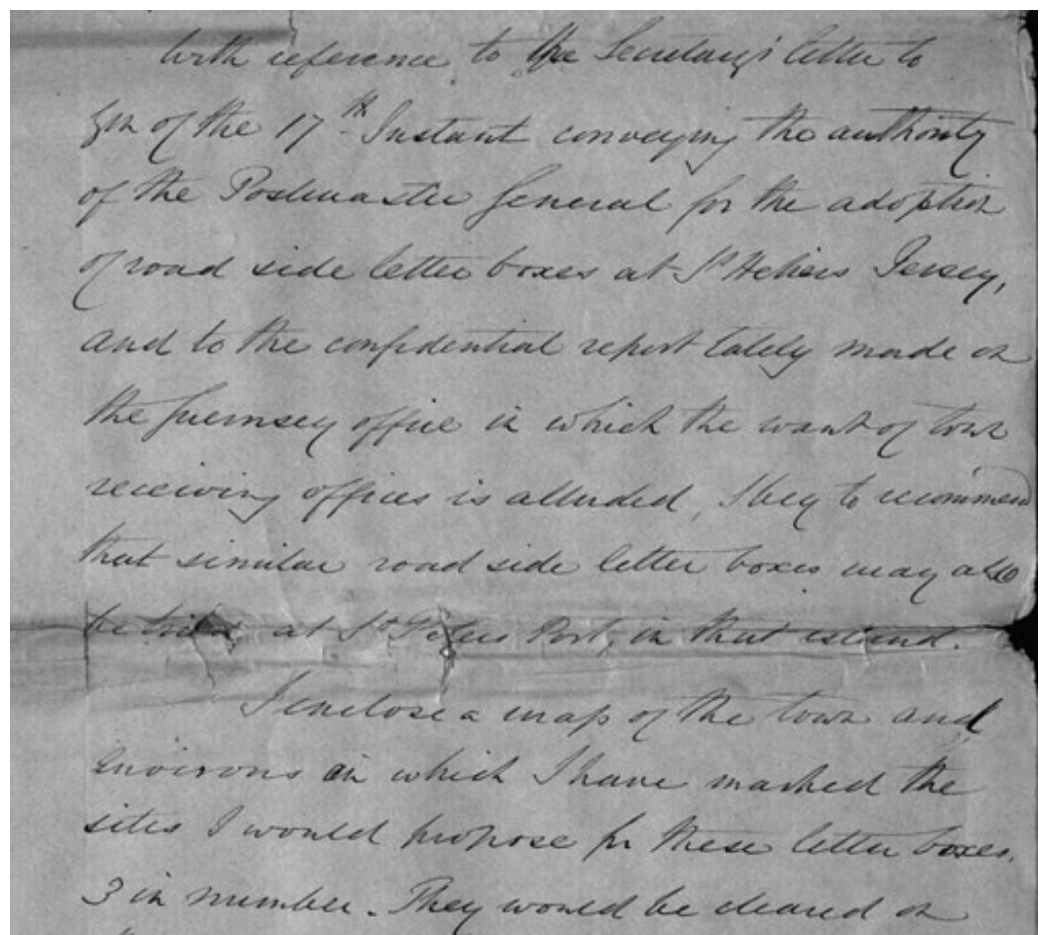 With reference to the Secretary's letter to
you of the 17th Instant conveying the authority
of the Postmaster General for the adoption
of road side letter boxes at St Heliers Jersey,
and to the confidential report lately made on
the Guernsey office in which the want of town
receiving offices is alluded, I beg to recommend
that similar road side letter boxes may also
be at St Peters Port, in that island.
I enclose a map of the town and
environs on which I have marked the
sites I would propose for these letter boxes,
3 in number. They would be cleared on